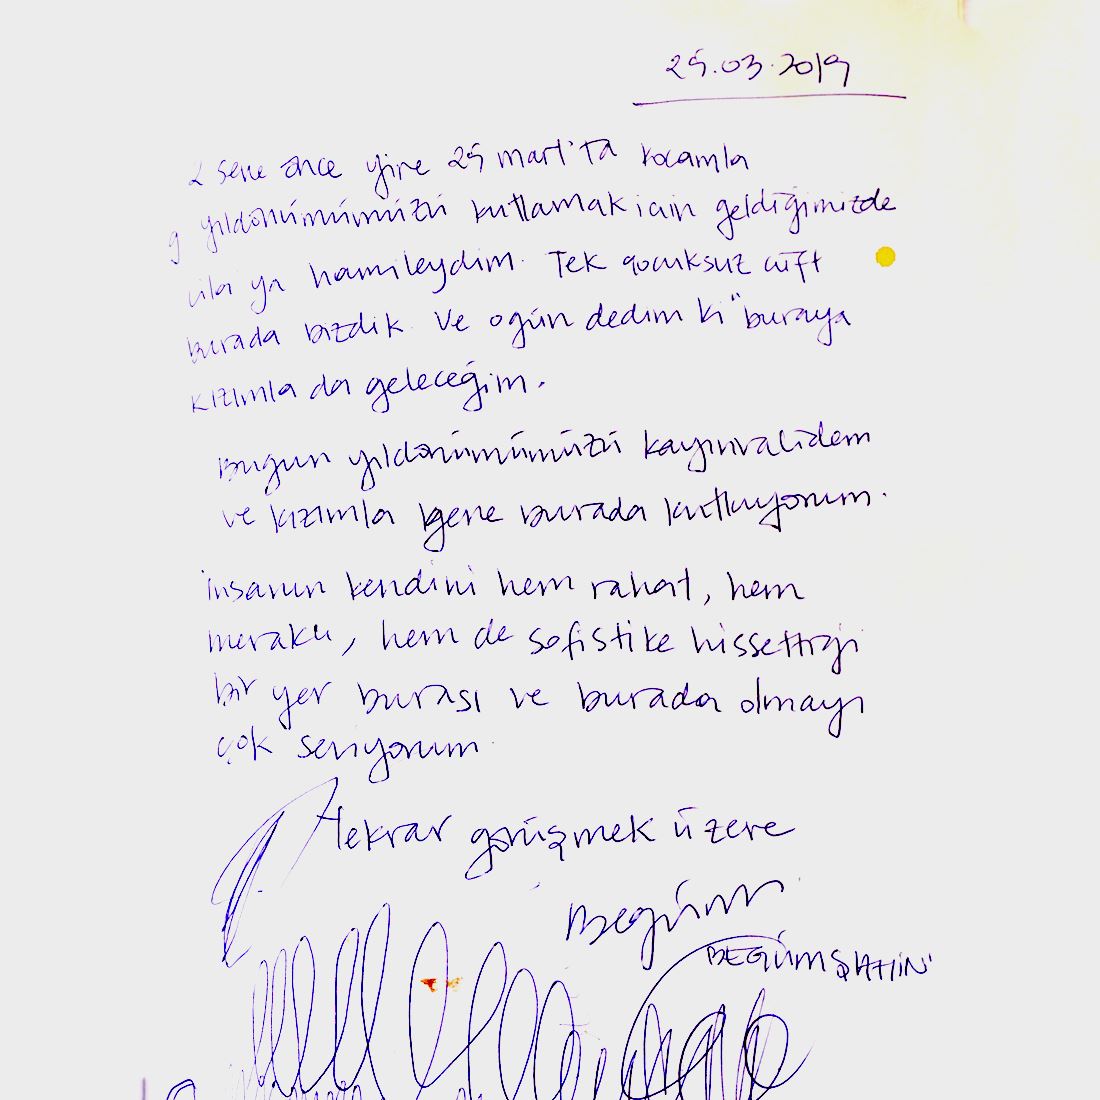 25.03.2019
2 sene önce yine 25 mart'ta kocamla
yıldönümümüzü kutlamak için geldiğimizde
hamileydim. Tek çocuksuz çift
burada bizdik. Ve ogün dedim ki "buraya
kızımla da geleceğim.
Bugün yıldönümümüzü kayınvalidem
ve kızımla gene burada kutluyorum.
insanın kendini hem rahat, hem
meraklı, hem de sofistike hissettiği
bir yer burası ve burada olmayı
çok seviyorum.
Tekrar görüşmek üzere
Begüm
BEGÜM ŞAHİN